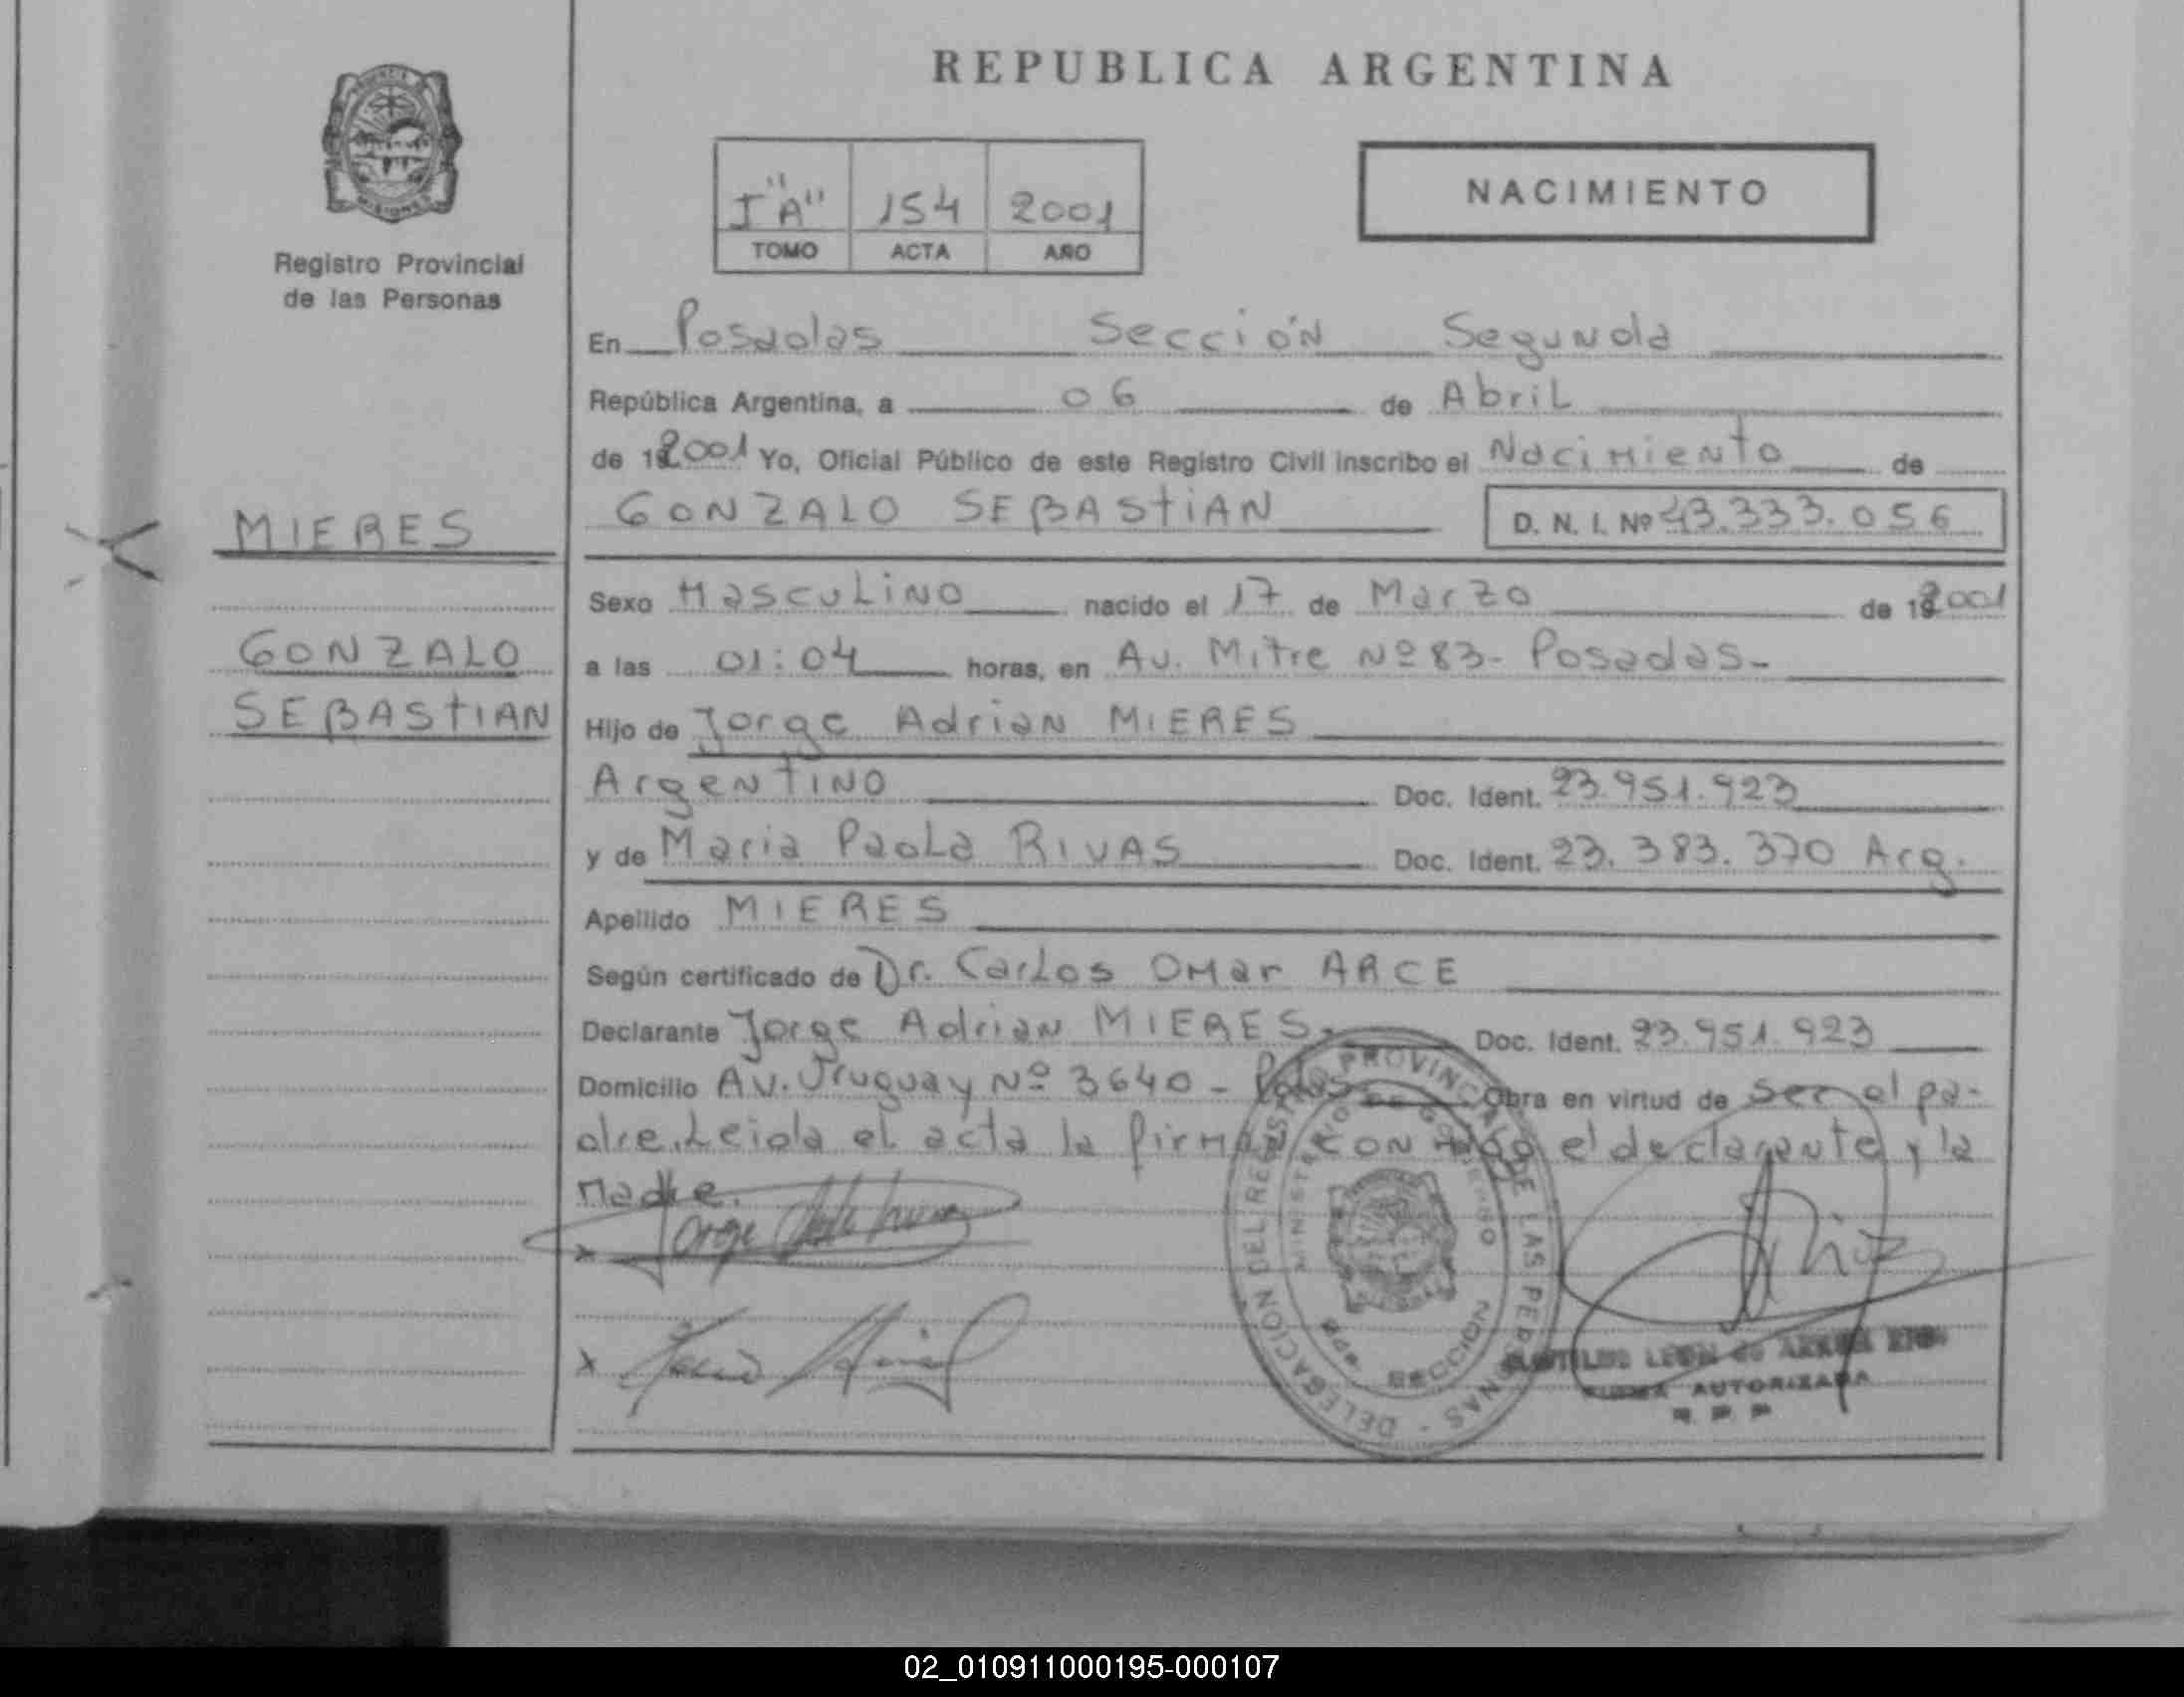 REPUBLICA ARGENTINA
MISIONES
Registro Provincial
de las Personas
I "A" 154 2001
TOMO ACTA AÑO
NACIMIENTO
En Posadas Sección Segunda
República Argentina, a 06 de Abril
de 192001 Yo, Oficial Público de este Registro Civil inscribo el Nacimiento de
GONZALO SEBASTIAN D. N. I. Nº 43.333.056
MIERES
GONZALO
SEBASTIAN
Sexo Masculino nacido el 17 de Marzo de 192001
a las 01:04 horas, en Av. Mitre Nº 83- Posadas-
Hijo de Jorge Adrian MIERES
Argentino Doc. Ident. 23.951.923
y de Maria Paola RIVAS Doc. Ident. 23.383.370 Arg.
Apellido MIERES
Según certificado de Dr. Carlos Omar ARCE
Declarante Jorge Adrian MIERES Doc. Ident. 23.951.923
Domicilio Av. Uruguay Nº 3640 - Pdas Obra en virtud de ser el pa-
dre. Leida el acta la firman conmigo el declarante y la
Madre.
DELEGACION DEL REGISTRO PROVINCIAL DE LAS PERSONAS
MINISTERIO DE GOBIERNO
SECCION
FIRMA AUTORIZADA
02_010911000195-000107